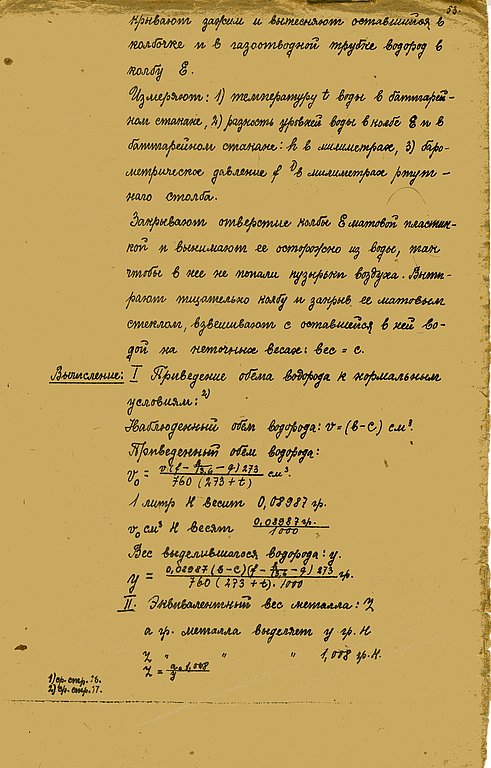 53.
крывают зажим и вытесняют оставшийся в
колбочке и в газоотводной трубке водород в
колбу Е.
Измеряют: 1) температуру t воды в баттарей-
ном стакане, 2) разность уровней воды в колбе Е и в
баттарейном стакане: h в милиметрах, 3) баро-
метрическое давление f 1) в милиметрах ртут-
наго столба.
Закрывают отверстие колбы Е матовой пластин-
кой и вынимают ее осторожно из воды, так
чтобы в нее не попали пузырьки воздуха. Выти-
рают тщательно колбу и закрыв ее матовым
стеклом, взвешивают с оставшейся в ней во-
дой на неточных весах: вес = c.
Вычисление: I Приведение обема водорода к нормальным
условиям: 2)
Наблюденный обем водорода: v = (b-c) см³.
Приведенный обем водорода:
v₀ = v(f - h/13,6 - q) 273 / 760 (273 + t) см³.
1 литр H весит 0,08987 гр.
v₀ см³ H весят 0,08987 гр. / 1000
Вес выделившагося водорода: y.
y = 0,08987 (b-c)(f - h/13,6 - q) 273 / 760 (273 + t). 1000 гр.
II. Эквивалентный вес металла: Z
a гр. металла выделяет y гр. H
Z " " " 1,008 гр. H.
Z = a . 1,008 / y
1) ср. стр. 36.
2) ср. стр. 37.